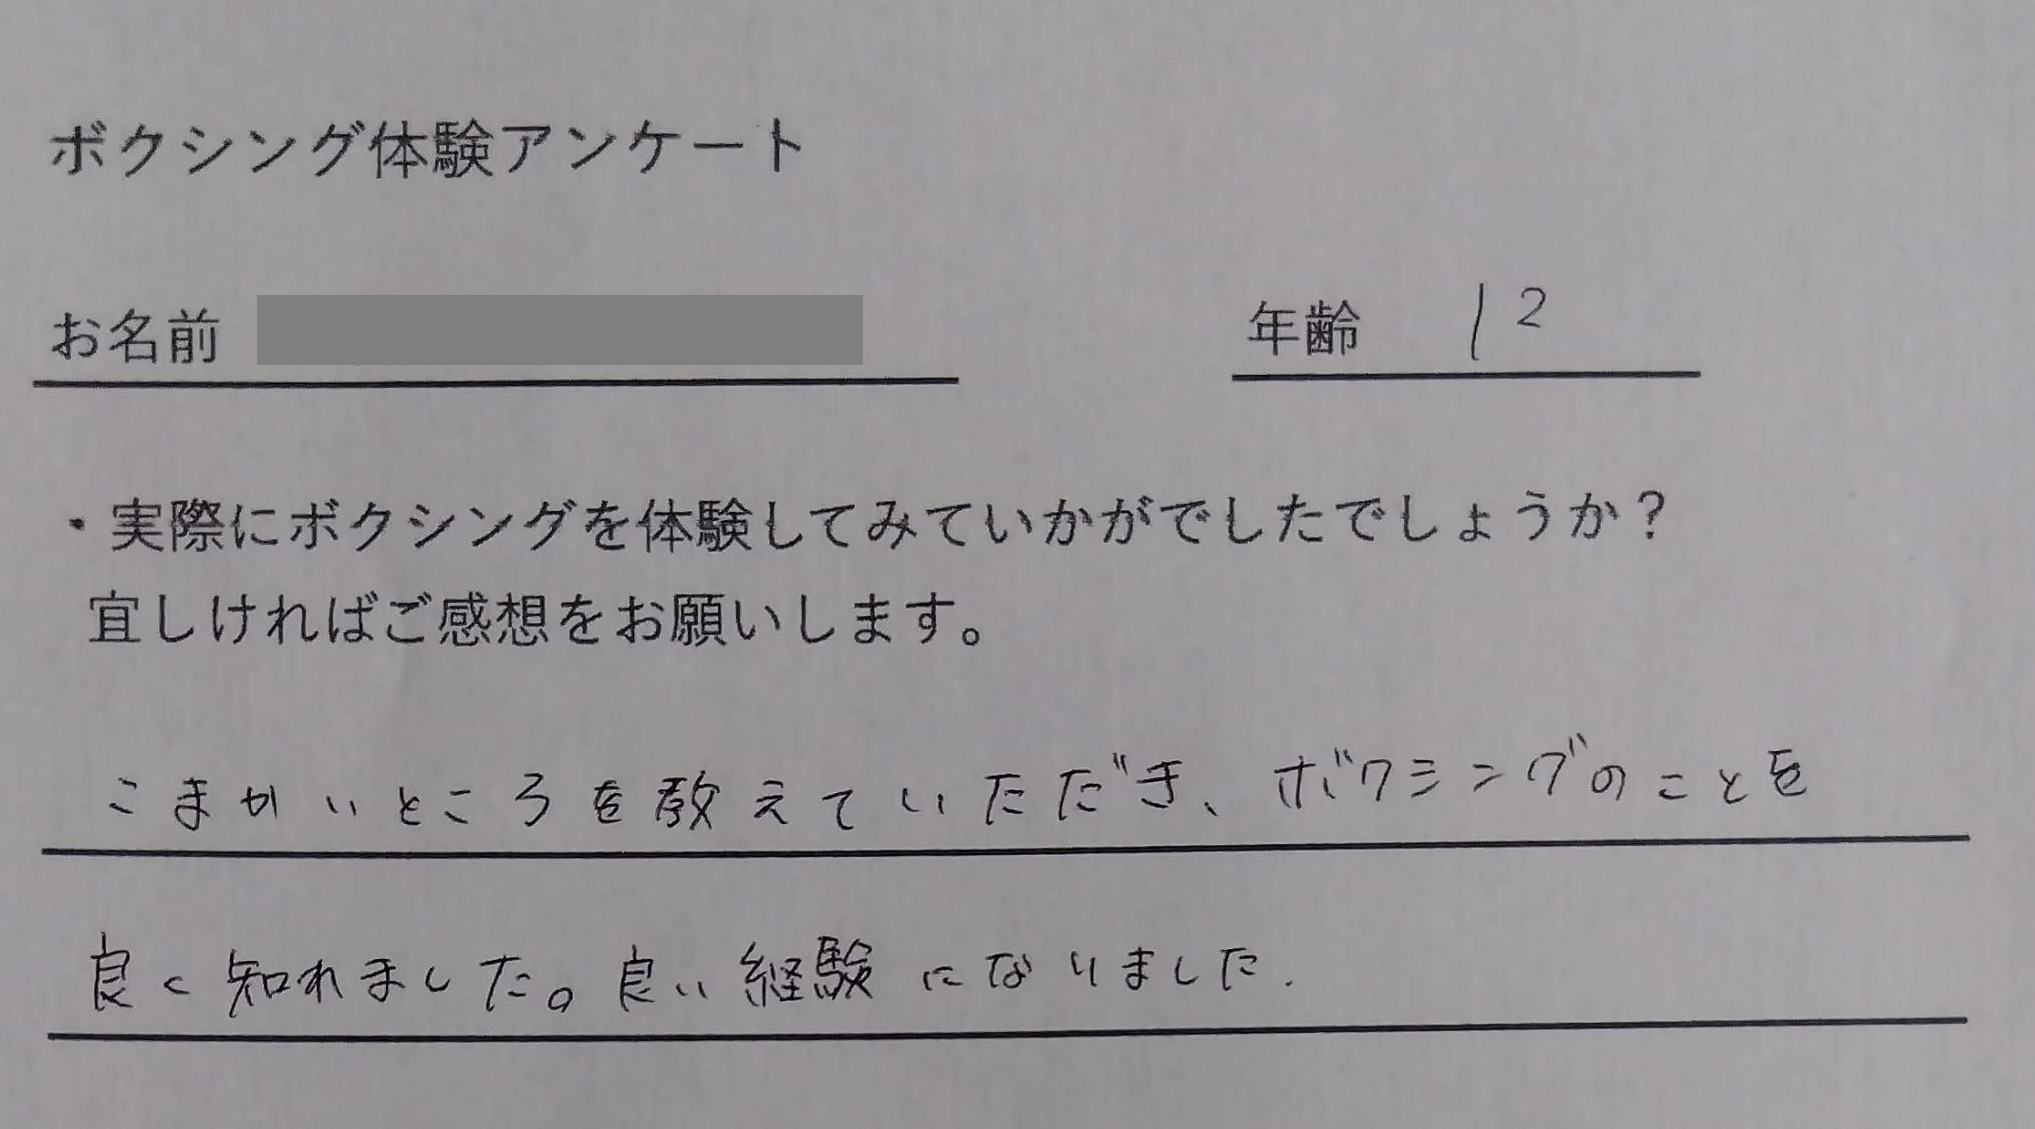 ボクシング体験アンケート
お名前
年齢 12
・実際にボクシングを体験してみていかがでしたでしょうか？
宜しければご感想をお願いします。
こまかいところを教えていただき、ボクシングのことを
良く知れました。良い経験になりました.